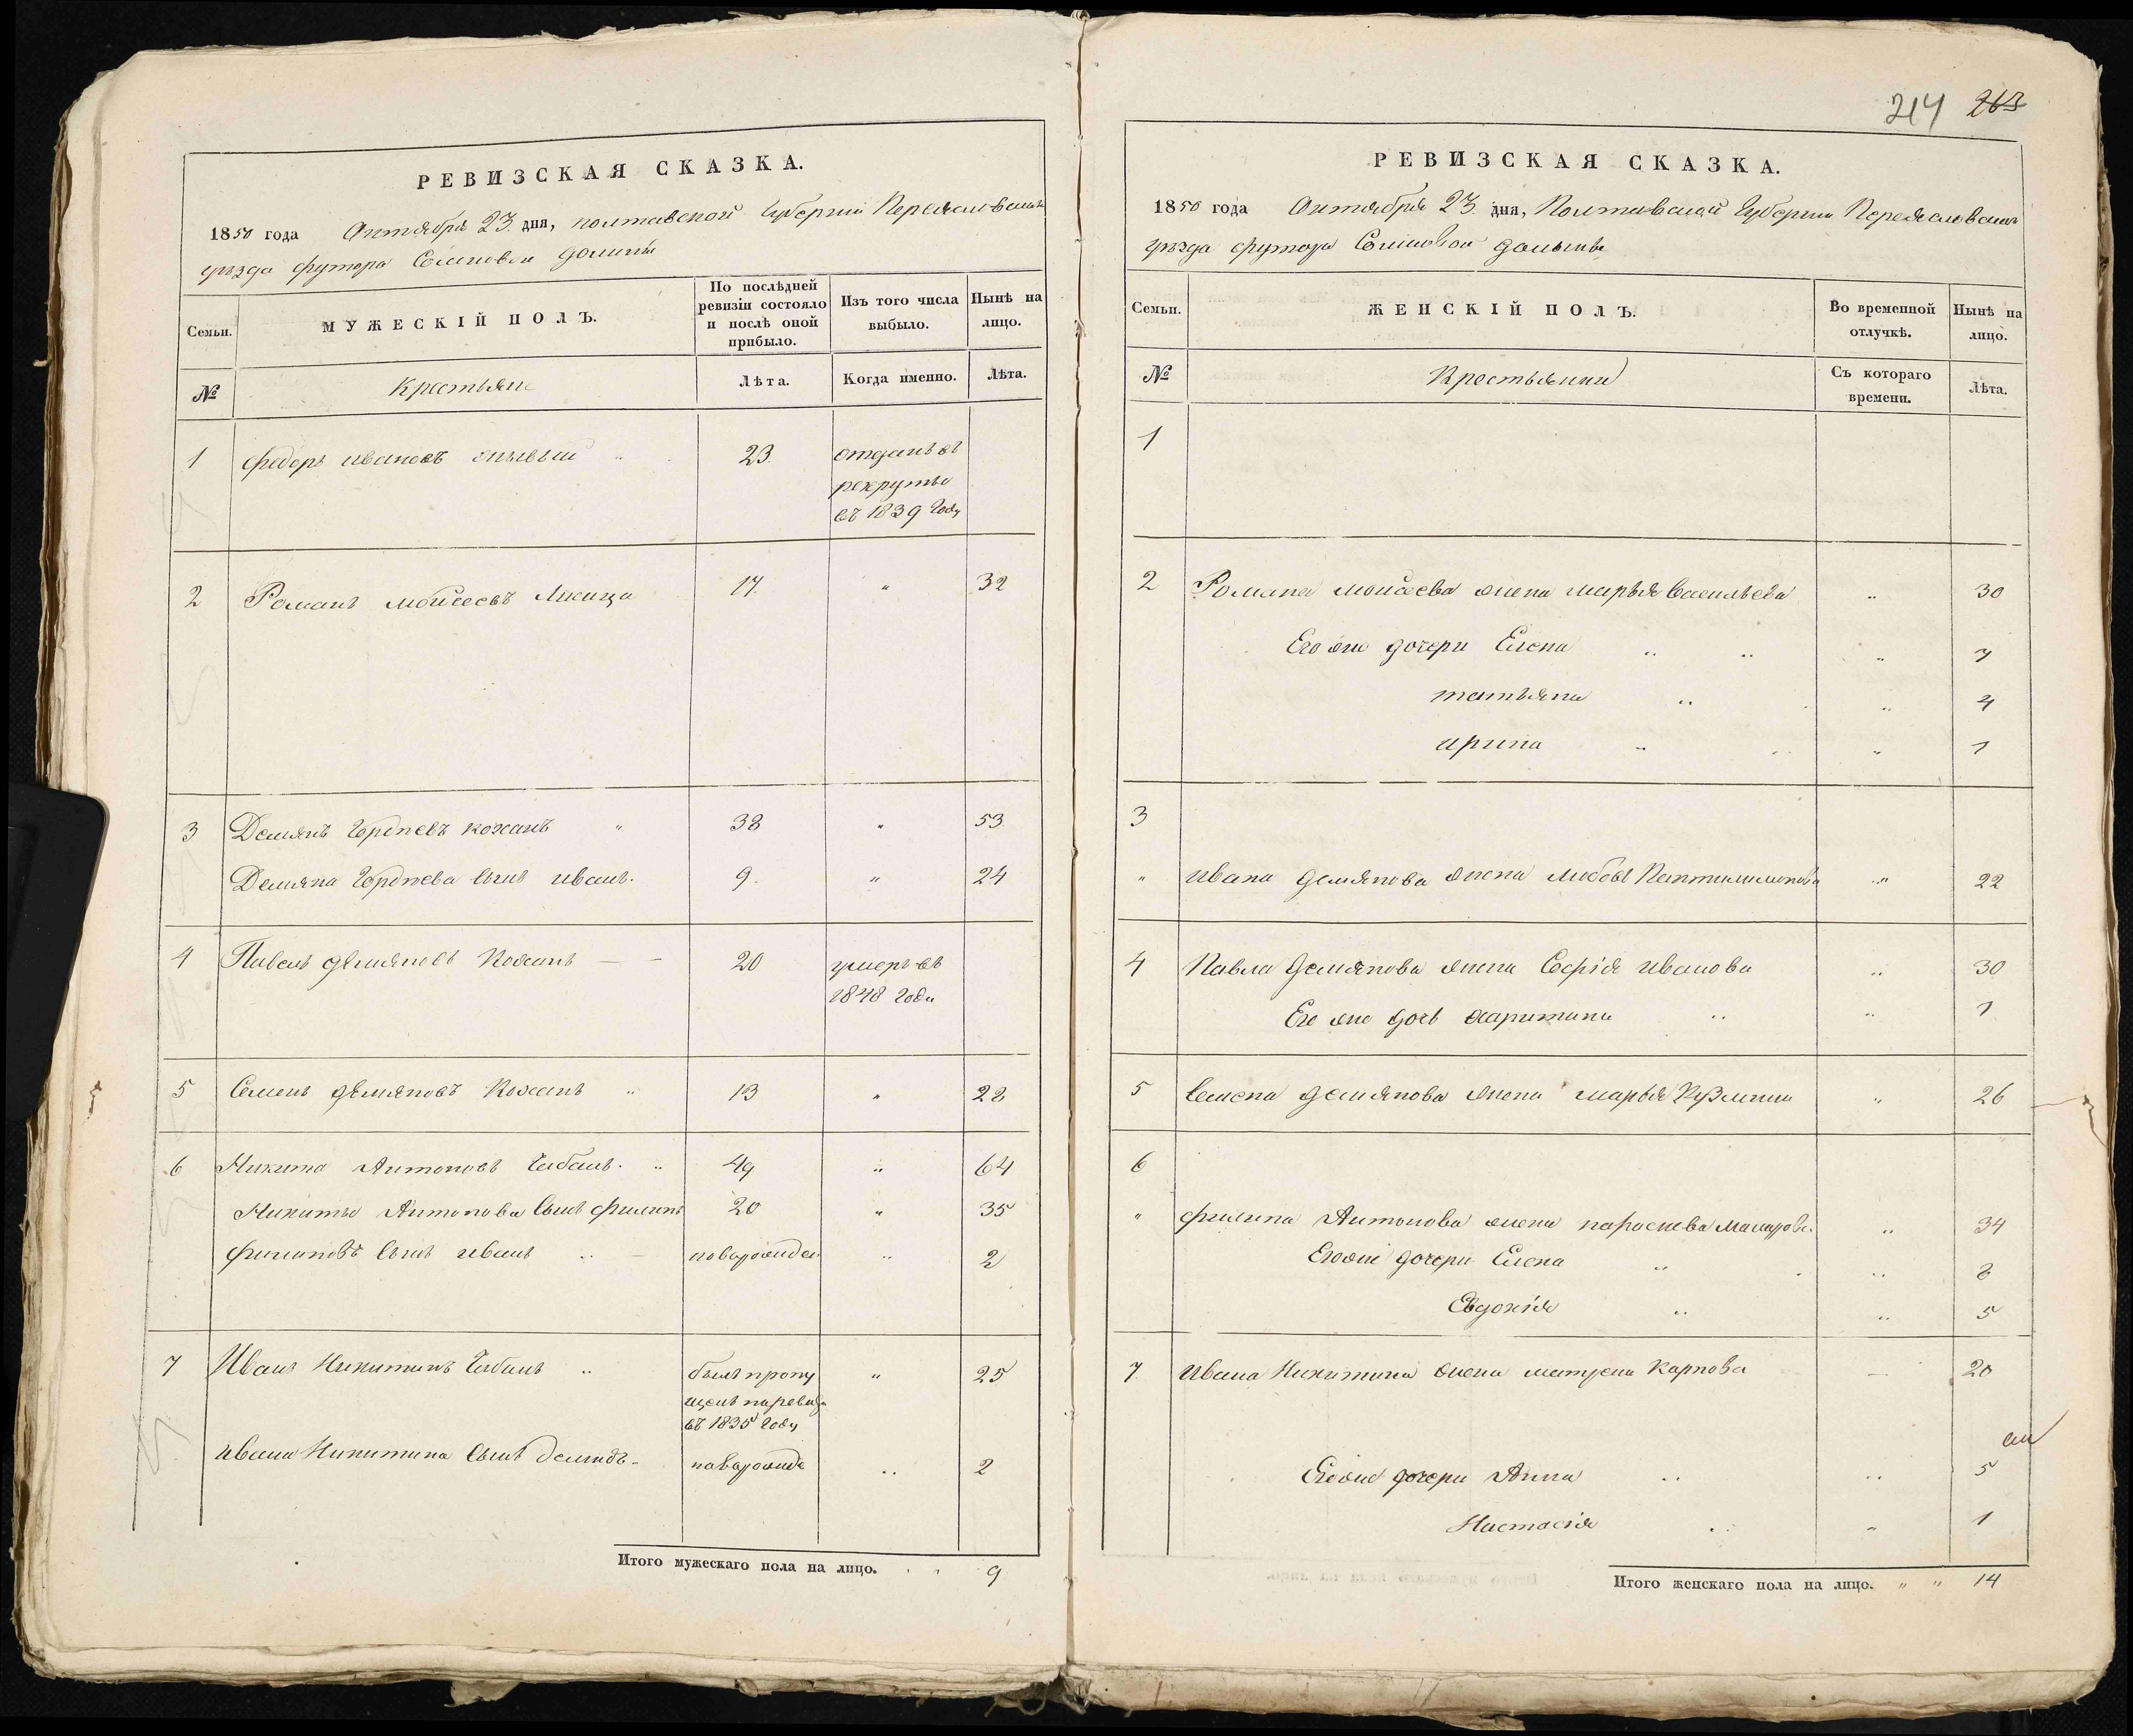 РЕВИЗСКАЯ СКАЗКА.
1850 года Октября 23 дня, полтавской Губернии Переяславскаго
уезда футора Солиовой Долины
Семьи.
МУЖЕСКІЙ ПОЛЪ.
По послѣдней ревизіи состояло и послѣ оной прибыло.
Изъ того числа выбыло.
Нынѣ на лицо.
№
Крестьяне
Лѣта.
Когда именно.
Лѣта.
1 федоръ ивановъ 23 отданъ въ
рекруты
въ 1839 году
2 Романъ мойсеевъ 17 " 32
3 Демянъ Гордѣевъ кожанъ " 38 " 53
Демяна Гордѣева сынъ иванъ. 9. " 24
4 Павелъ демяновъ Кожанъ — – 20 умеръ въ
1848 году
5 Семенъ демяновъ Кожанъ " 13 " 28
6 Никита Антоновъ Чабанъ. " 49 " 64
Никиты Антонова сынъ филипъ 20 " 35
филиповъ сынъ иванъ " – новарожден " 2
7 Иванъ Никитинъ Чабанъ " былъ пропу " 25
щенъ
въ 1835 году
ивана Никитина сынъ демидъ - новарожде " 2
Итого мужескаго пола на лицо. 9
214 263
РЕВИЗСКАЯ СКАЗКА.
1850 года Октября 23 дня, Полтавской Губернии Переяславскаго
уезда футора Солиовой долины
Семьи.
ЖЕНСКІЙ ПОЛЪ.
Во временной отлучкѣ.
Нынѣ на лицо.
№
Крестьянки
Съ котораго времени.
Лѣта.
1
2 Романа мойсеева жена марья васильева " 30
Его же дочери Елена " " " 7
татьяна " " 4
ирина " " 1
3
" ивана демянова жена любовь " 22
4 Павла демянова жена Софія иванова " 30
Его же дочь харитина " " 1
5 Семена демянова жена марья Кузмина " 26
6
" филипа Антонова жена параскева макарова " 34
Его же дочери Елена " " 8
Евдокія " " 5
7. Ивана Никитина жена матрена Карпова — 20
Его же дочери Анна " " 5
Настасія " " 1
Итого женскаго пола на лицо. " " 14